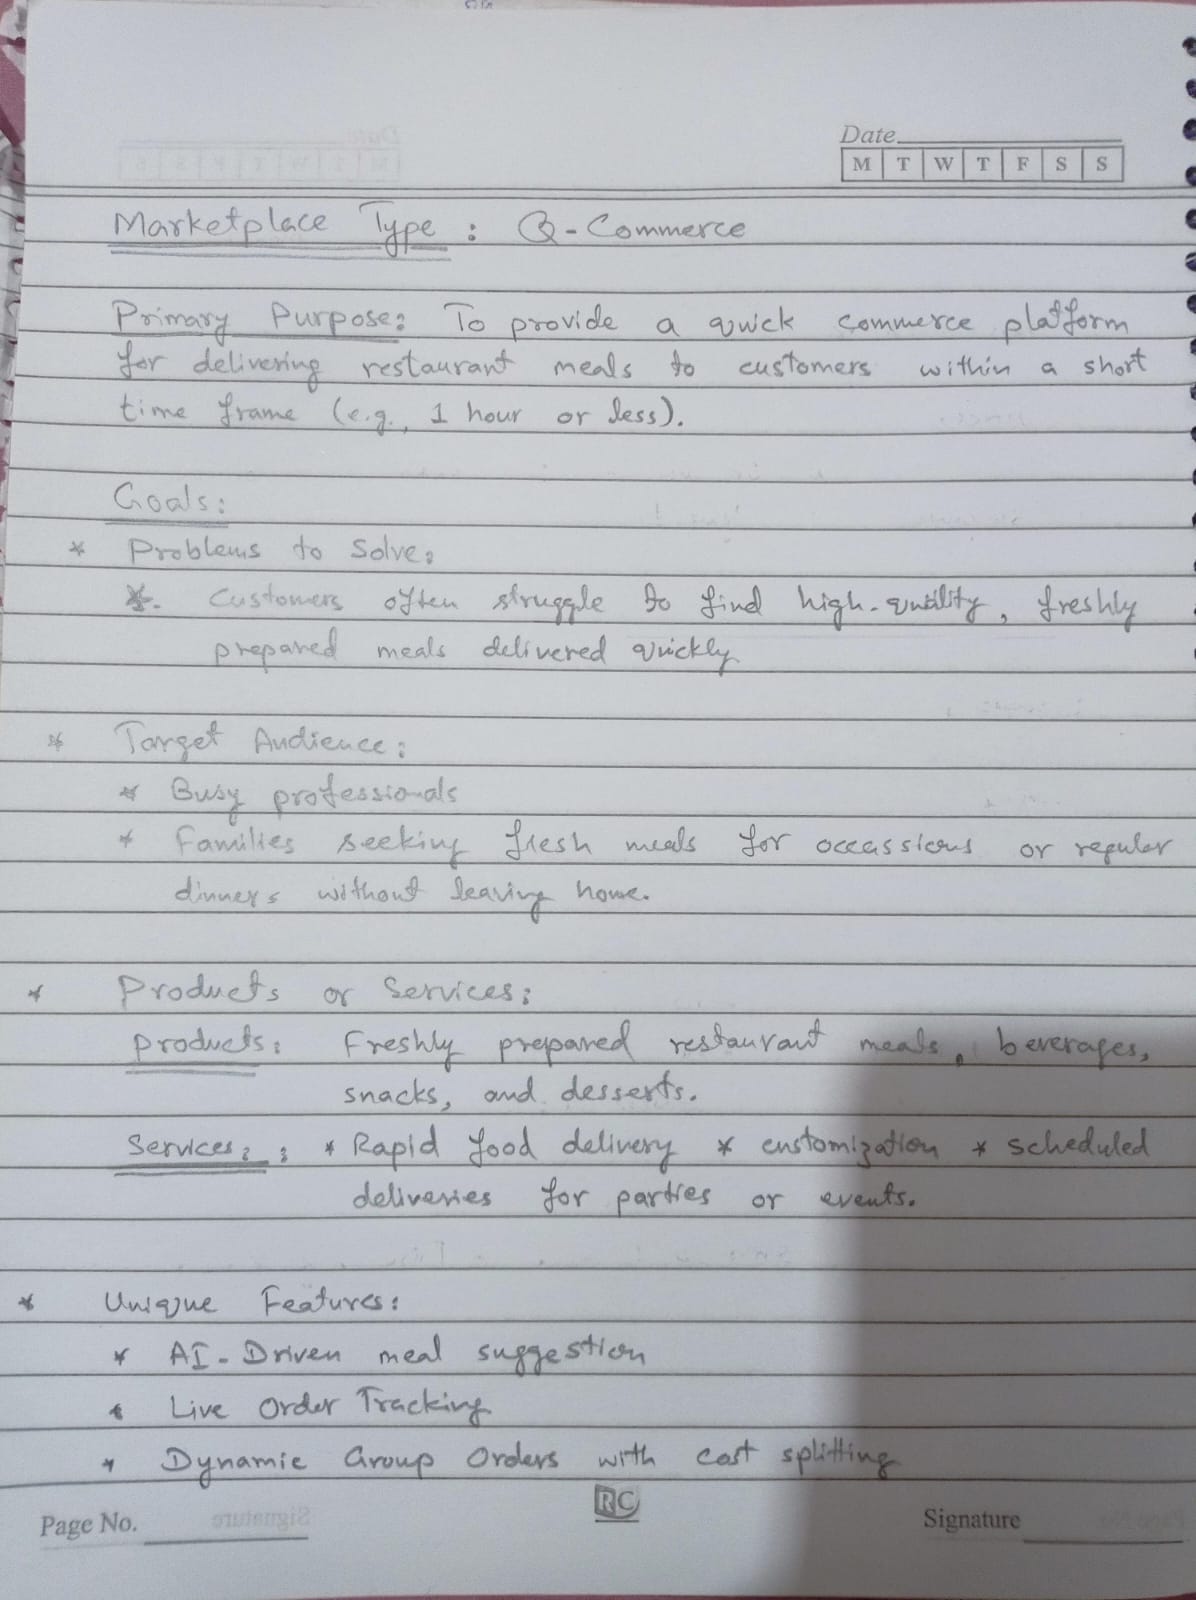 Date
M T W T F S S
Marketplace Type : Q-Commerce
Primary Purpose: To provide a quick commerce platform
for delivering restaurant meals to customers within a short
time frame (e.g., 1 hour or less).
Goals:
* Problems to Solve:
*. Customers often struggle to find high-quality, freshly
prepared meals delivered quickly
* Target Audience:
* Busy professionals
* Families seeking fresh meals for occassions or regular
dinners without leaving home.
* Products or Services:
Products: Freshly prepared restaurant meals, beverages,
snacks, and desserts.
Services: : * Rapid food delivery * customization * scheduled
deliveries for parties or events.
* Unique Features:
* AI-Driven meal suggestion
* Live Order Tracking
* Dynamic Group Orders with cost splitting
Page No.
RC
Signature